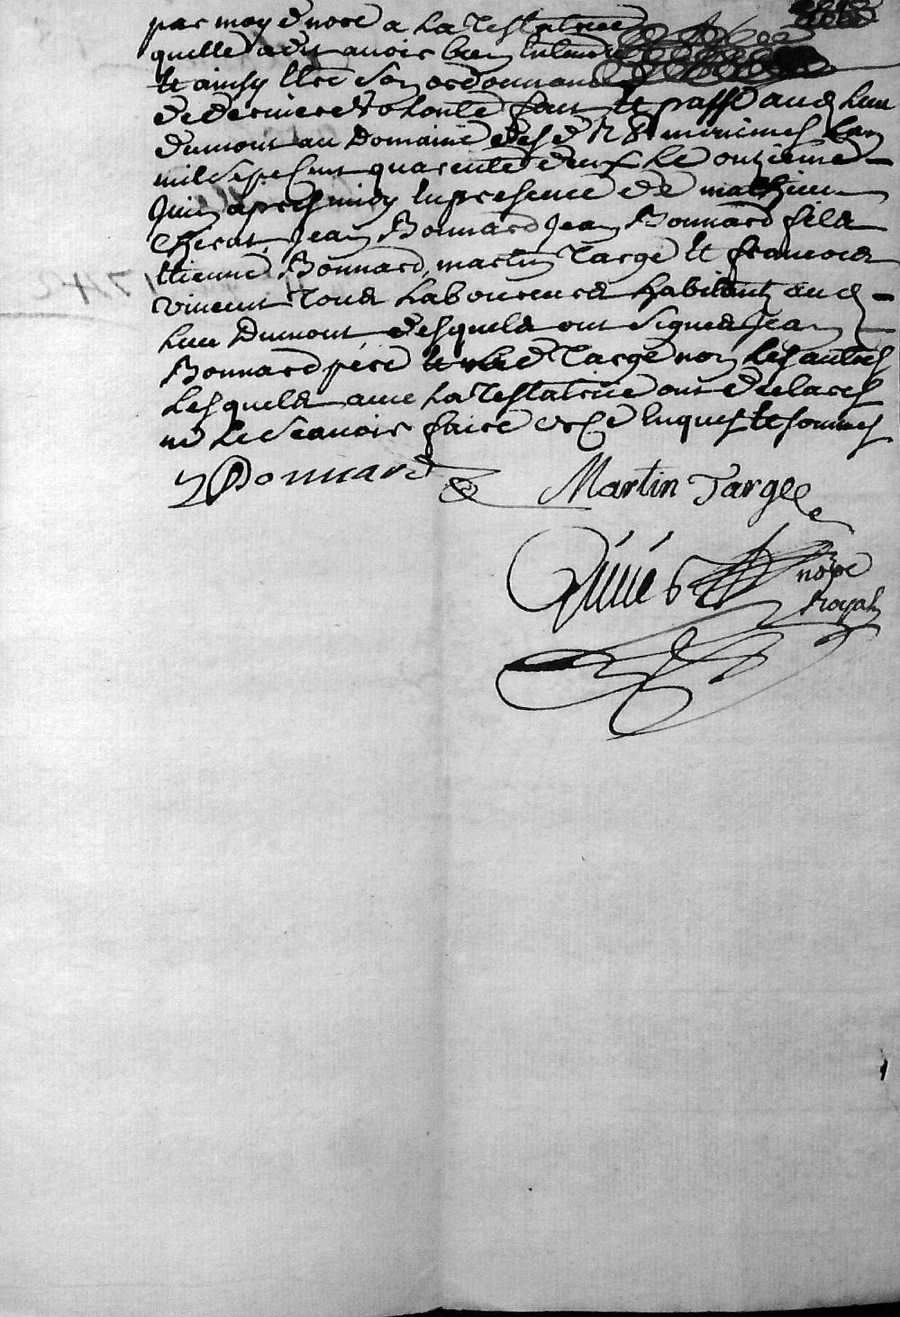 par moy d nore a La Testatrice
quelle a dit avoir bien Entendu
Et ainsy Etre son ordonnance
de derniere volonté fait et passé aud Lieu
Dumont au Domaine desd R P minimes Lan
mil sept Cent quarente deux Le onzieme
Juin apres midy En presence de mathieu
Jean Bonnard Jean Bonnard fils a
Etienne Bonnard, martin Targe Et francois
vincent Tous Laboureurs habitants aud
Lieu Dumont desquels ont signes Jean
Bonnard pere Et led Targe non Les autres
Lesquels avec La Testatrice ont declarés
ne Le scavoir faire de ce Enquis Et sommes
J Bonnard Martin Targe
nore
Royal
1742